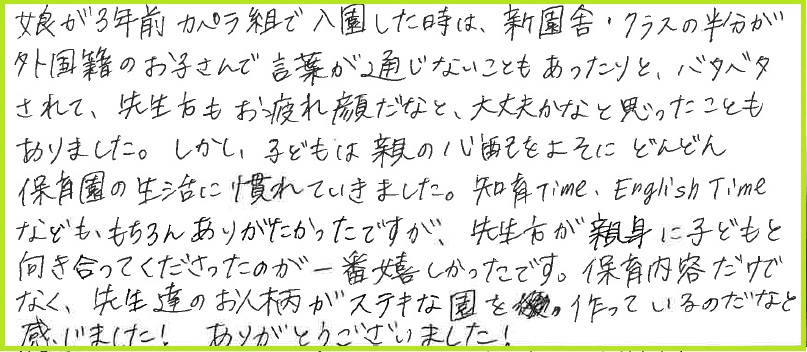 娘が3年前カペラ組で入園した時は、新園舎・クラスの半分が
外国籍のお子さんで言葉が通じないこともあったりと、バタバタ
されて、先生方もお疲れ顔だなと、大丈夫かなと思ったことも
ありました。しかし、子どもは親の心配をよそにどんどん
保育園の生活に慣れていきました。知育Time、English Time
なども、もちろんありがたかったですが、先生方が親身に子どもと
向き合ってくださったのが一番嬉しかったです。保育内容だけで
なく、先生達のお人柄がステキな園を作っているのだなと
感じました！ ありがとうございました！